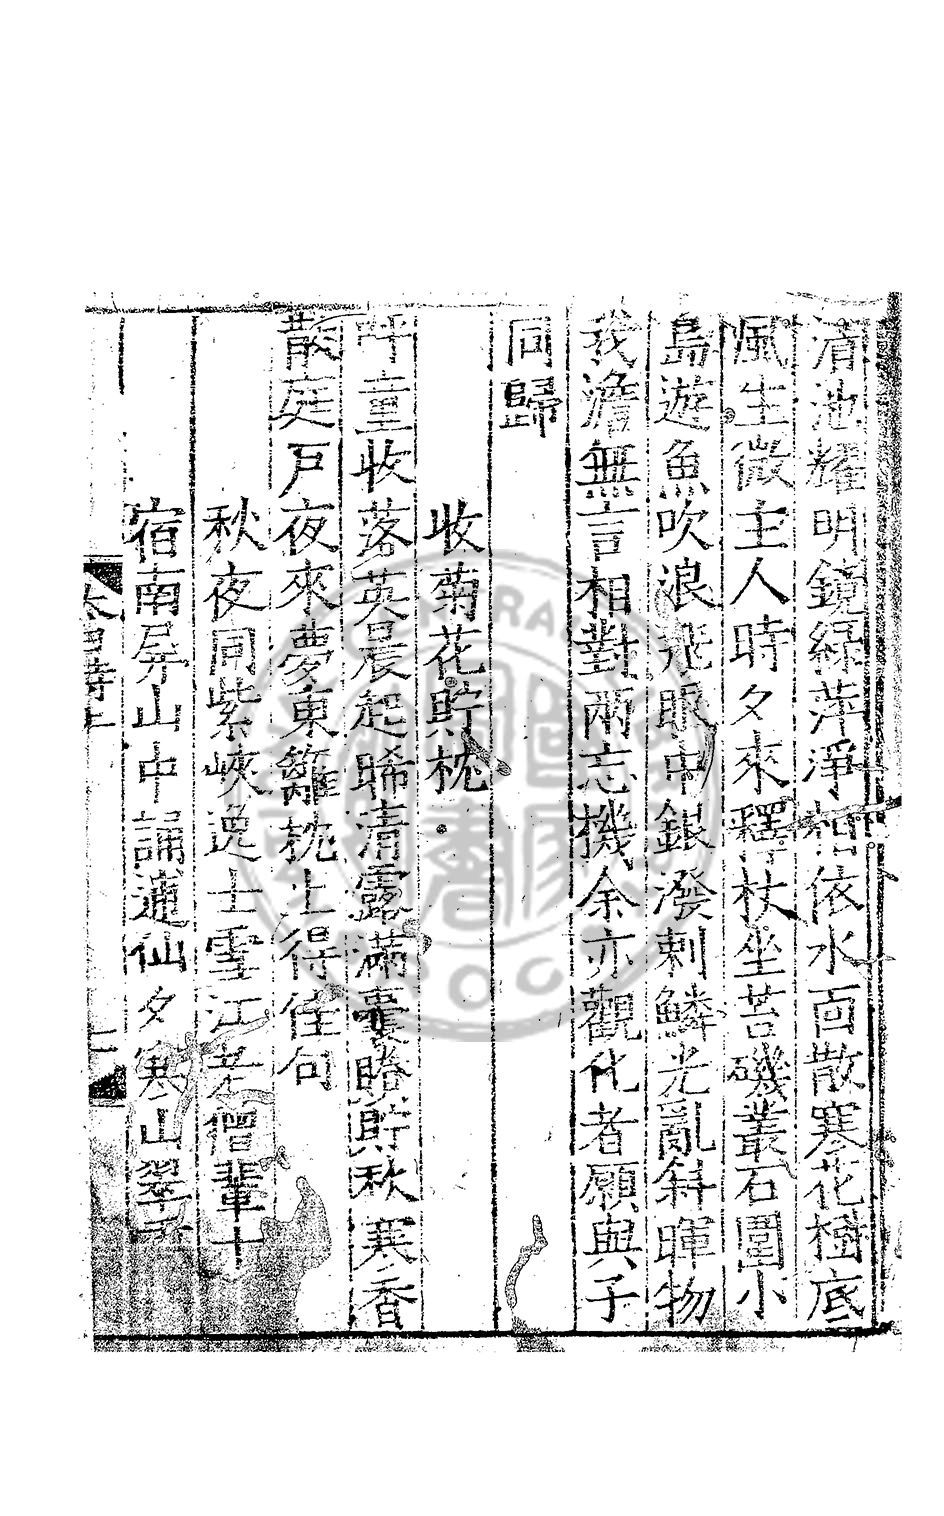 清池耀明鏡綠萍淨相依水面散寒花樹底
風生微主人時夕來釋杖坐苔磯叢石圍小
島遊魚吹浪飛眼中銀潑剌鱗光亂斜暉物
我澹無言相對兩忘機余亦觀化者願與子
同歸
收菊花貯枕
呼童收落英晨起晞清露滿囊賸貯秋寒香
散庭戸夜來夢東籬枕上得佳句
秋夜同紫峽逸士雪江老僧輩十
宿南屏山中誦逋仙夕寒山翠